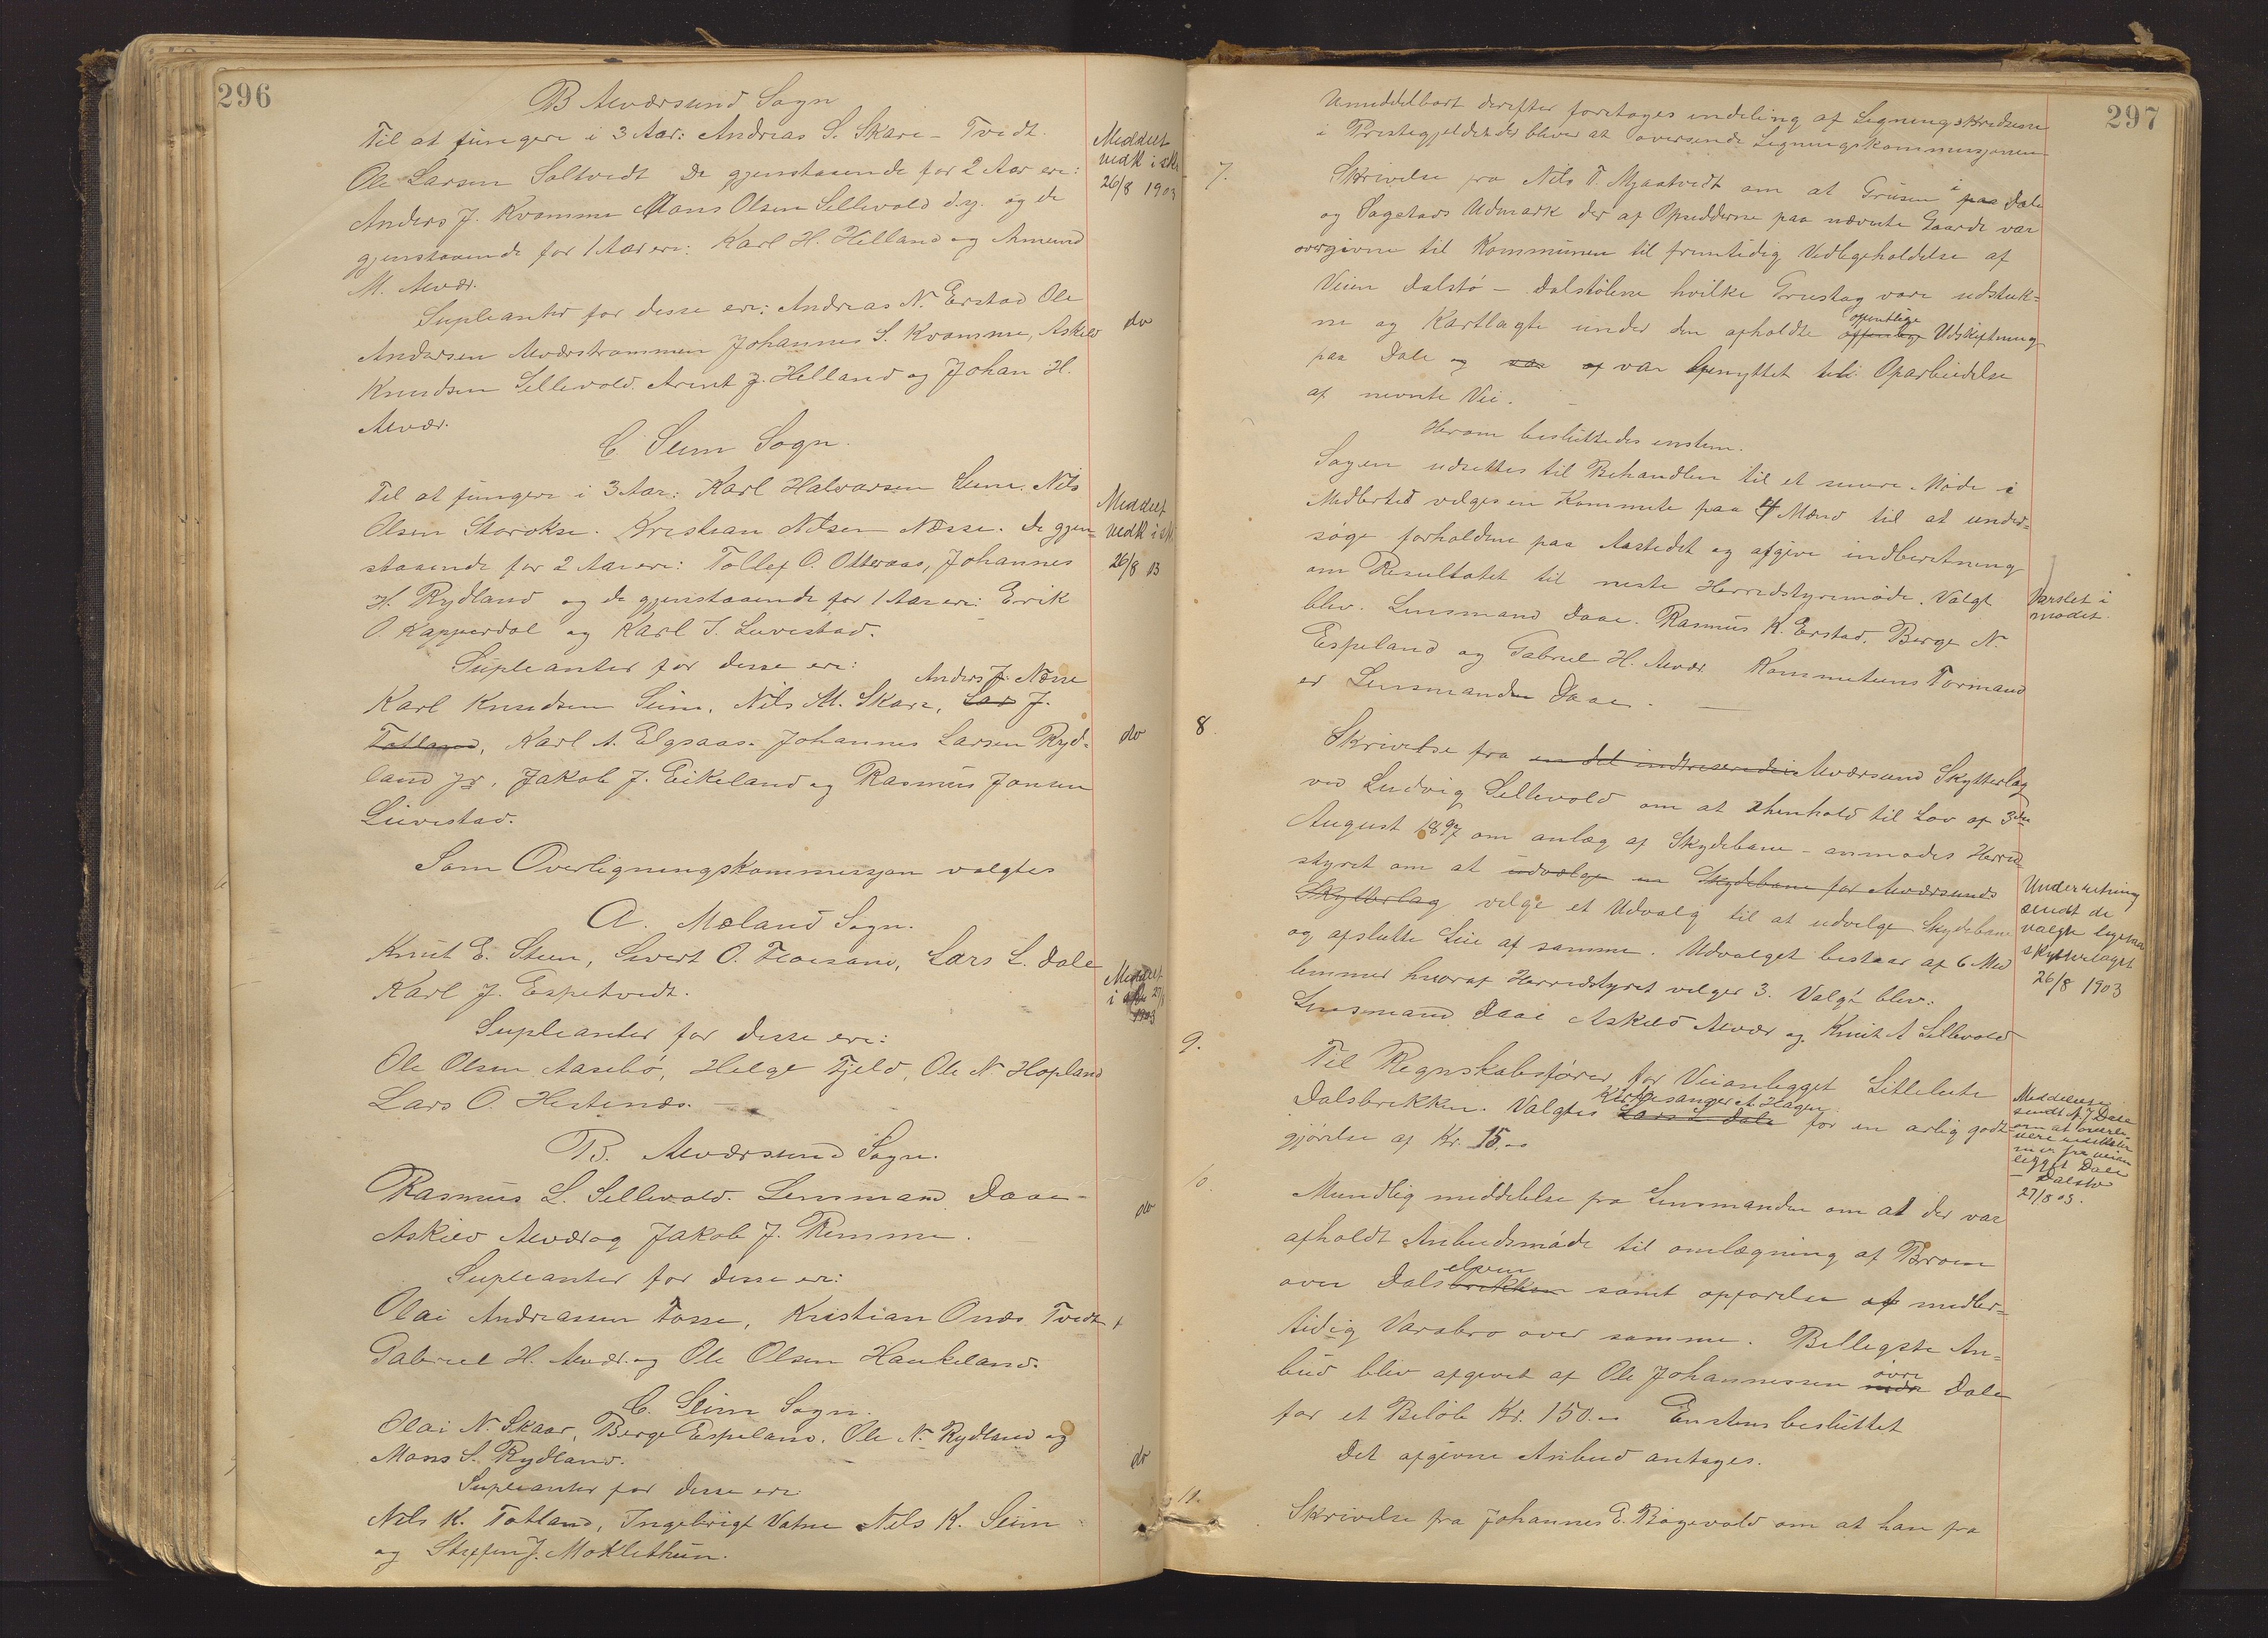 296
B Alværsund Sogn
Til at fungere i 3 Aar: Andreas S. Skare - Tvedt.
Ole Larsen Soltvedt De gjenstaaende for 2 Aar ere:
Anders J. Kvamme Mons Olsen Sellevold d.y. og de
gjenstaaende for 1 Aar ere: Karl H. Helland og Amund
M. Alvær.
Supleanter for desse ere: Andreas N. Erstad Ole
Andersen Alværstrømmen Johannes S. Kvamme, Askild
Knudsen Sellevold. Arent J. Helland og Johan H.
Alvær.
C Seim Sogn.
Til at fungere i 3 Aar: Karl Halvorsen Seim. Nils
Olsen Storokse. Kristian Nilsen Næsse. De gjen=
staaende for 2 Aar ere: Tollef O. Otteraas, Johannes
H. Rydland og de gjenstaaende for 1 Aar ere: Erik
O. Kapperdal og Karl I. Luvestad.
Supleanter for desse ere:
Anders J. Næsse
Karl Knudsen Seim, Nils M. Skare, Lars J.
Totland, Karl A. Elgsaas. Johannes Larsen Ryd=
land jr, Jakob J. Eikeland og Rasmus Jonsen
Luvestad.
Som Overligningskommissjon valgtes
A. Mæland Sogn.
Knut E. Steen, Sivert O. Floisand, Lars L. Dale
Karl J. Espetvedt.
Supleanter for desse ere:
Ole Olsen Aasebø, Helge Fjeld, Ole N. Hopland
Lars O. Hestenæs.
B. Alværsund Sogn.
Rasmus L. Sellevold. Lensmand Daae -
Askild Alvær og Jakob J. Remme.
Supleanter for desse er:
Olai Andreassen Fosse, Kristian Onæs Tvedt
Gabriel H. Alvær. og Ole Olsen Haukeland.
C. Seim Sogn.
Olai N. Skaar, Berge Espeland, Ole N. Rydland og
Mons S. Rydland.
Supleanter for desse ere:
Nils K. Totland, Ingebrigt Vatne Nils K. Seim
og Steffen J. Moklethun.
Meddelt
vedk i skr
26/8 1903
do
Meddelt
vedk i skr
26/8 03
do
Meddelt
i skr 27/8
1903
do
do
297
Umiddelbart derefter foretages indeling af Ligningskredsene
i Prestegjeldet der bliver at oversende Ligningskommissjonen
7.
Skrivelse fra Nils T. Mjaatvedt om at Grusen i paa Dale
og Sagstads Udmark der af Opsidderne paa nævnte Gaarde var
overgivne til Kommunen til fremtidig Vedlegeholdelse af
Veien Dalstø - Dalstølene hvilke Grustag vare udstuk=
ne og Kartlagte under den afholdte offentlige offentlige Udskiftning
paa Dale og var af var benyttet til Oparbeidelse
af nevnte Vei.
Herom besluttedes enstem.
Sagen udsettes til Behandlen til et senere Møde i
Midlertid velges en Kommite paa 4 Mænd til at under=
søge forholdene paa Aastedet og afgive indberetning
om Resultatet til neste Herredstyremøde. Valgt
blev. Lensmand Daae. Rasmus K. Erstad, Berge N.
Espeland og Gabriel H. Alvær. Kommiteens Formand
er Lensmanden Daae.
Varslet i
mødet.
8.
Skrivelse fra en del indtreserede i Alværsund Skytterlag
ved Ludvig Sellevold om at i henhold til Lov af 3die
August 1897 om anlæg af Skydebane - anmodes Herred
styret om at udvælge en Skydebane for Alværsunds
Skytterlag velge et Udvalg til at udvelge Skydebane
og afslutte Leie af samme. Udvalget bestaar af 6 Med
lemmer hvoraf Herredstyret velger 3. Valgt blev:
Lensmand Daae Askild Alvær og Knut A Sellevold
Underretning
sendt de
valgte ligesaa
skytterlaget
26/8 1903
9.
Til Regnskabsfører for Veianlegget Litlelute
Kirkesanger A. Hagen
Dalsbrekken. Valgtes Lars L Dale for en aarlig godt
gjørelse af Kr. 15.-
Meddelelse
sendt A. J Dale
om at levere
vere
legget Dale
- Dalstø
27/8 03.
10.
Mundlig middelelse fra Lensmanden om at der var
afholdt Anbudsmøde til omlægning af Broen
elven
over Dalsbrekken samt opførelse af midler=
tidig Varabro over samme. Billigste An=
bud blev afgivet af Ole Johannessen øvre nedre Dale
for et Beløb Kr. 150.- Enstem besluttet
Det afgivne Anbud antages.
11.
Skrivelse fra Johannes E. Bøgevold om at han fra